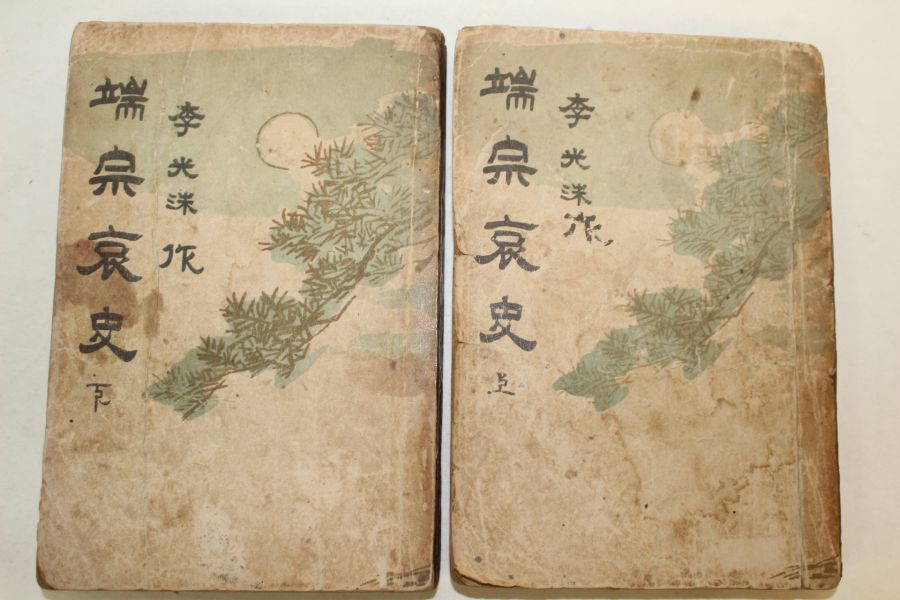 端宗哀史
李光洙 作
下
端宗哀史
李光洙 作
上